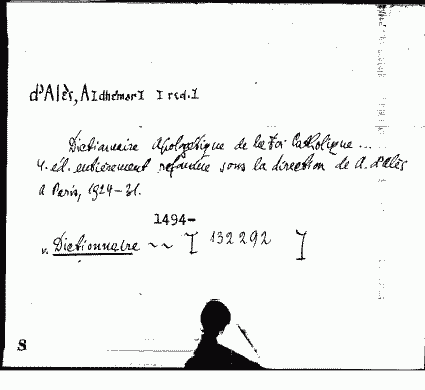 d'Alès, A[dhémar] [red.]
Dictionnaire apologétique de la foi Catholique ...
4. éd. entièrement refondue sous la direction de A. d'Alès
a Paris, 1924-31.
1494-
v. Dictionnaire ~~ [ 132292 ]
S